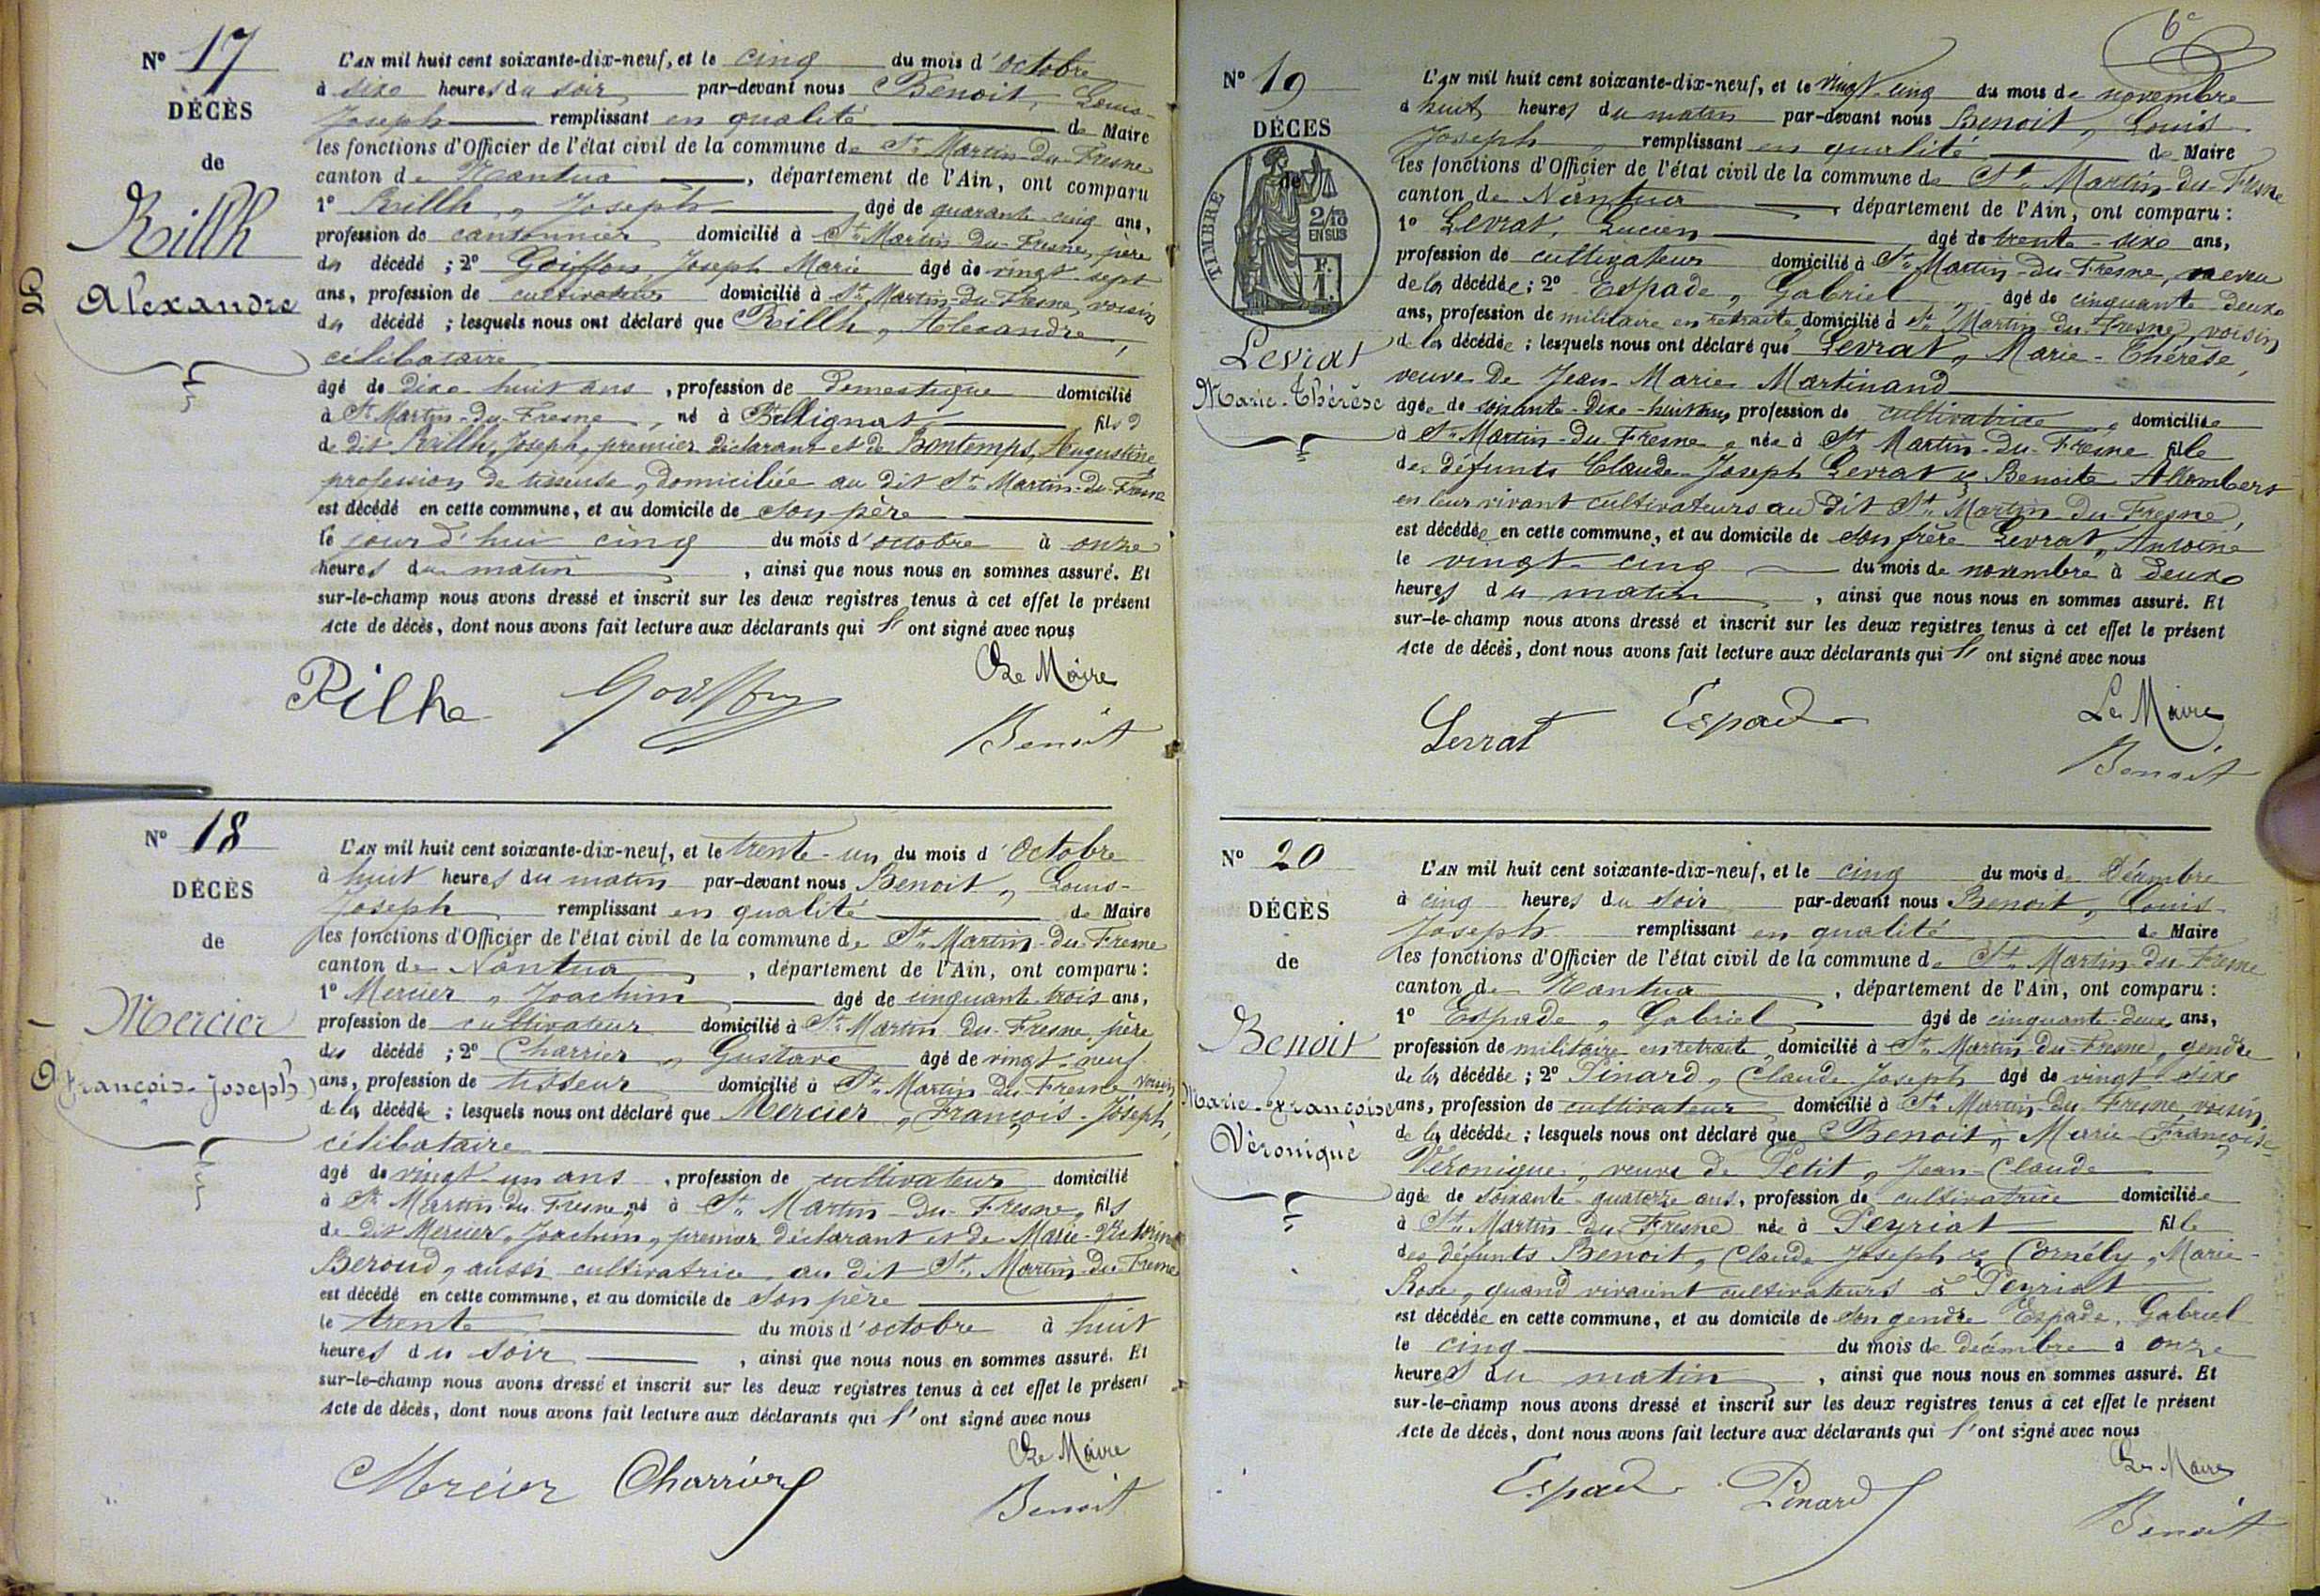 N° 17
DÉCÈS
de
Rillh
Alexandre
L'AN mil huit cent soixante-dix-neuf, et le cinq du mois d'octobre
à six heures du soir par-devant nous Benoit, Louis-
Joseph remplissant en qualité de Maire
les fonctions d'Officier de l'état civil de la commune de St Martin-du-Fresne
canton de Nantua, département de l'Ain, ont comparu
1° Rillh, Joseph âgé de quarante-cinq ans,
profession de cantonnier domicilié à St Martin-du-Fresne, père
du décédé ; 2° Goiffon, Joseph Marie âgé de vingt-sept
ans, profession de cultivateur domicilié à St Martin-du-Fresne, voisin
du décédé ; lesquels nous ont déclaré que Rillh, Alexandre,
célibataire
âgé de dix-huit ans, profession de domestique domicilié
à St Martin-du-Fresne, né à Bellignat fils
de dit Rillh, Joseph, premier déclarant et de Bontemps, Augustine
profession de tisseuse, domiciliée au dit St Martin-du-Fresne
est décédé en cette commune, et au domicile de son père
le jourd'hui cinq du mois d'octobre à onze
heures du matin, ainsi que nous nous en sommes assuré. Et
sur-le-champ nous avons dressé et inscrit sur les deux registres tenus à cet effet le présent
Acte de décès, dont nous avons fait lecture aux déclarants qui l'ont signé avec nous
Le Maire
Rilhe Goiffon
Benoit
N° 18
DÉCÈS
de
Mercier
François-Joseph
L'AN mil huit cent soixante-dix-neuf, et le trente-un du mois d'Octobre
à huit heures du matin par-devant nous Benoit, Louis-
Joseph remplissant en qualité de Maire
les fonctions d'Officier de l'état civil de la commune de St Martin-du-Fresne
canton de Nantua, département de l'Ain, ont comparu :
1° Mercier, Joachim âgé de cinquante-trois ans,
profession de cultivateur domicilié à St Martin-du-Fresne, père
du décédé ; 2° Charrier, Gustave âgé de vingt-neuf
ans, profession de tisseur domicilié à St Martin-du-Fresne voisin
de la décédée ; lesquels nous ont déclaré que Mercier, François-Joseph,
célibataire
âgé de vingt-un ans, profession de cultivateur domicilié
à St Martin-du-Fresne, né à St Martin-du-Fresne, fils
de dit Mercier, Joachim, premier déclarant et de Marie-Victorine
Beroud, aussi cultivatrice au dit St Martin-du-Fresne
est décédé en cette commune, et au domicile de son père
le trente du mois d'octobre à huit
heures du soir, ainsi que nous nous en sommes assuré. Et
sur-le-champ nous avons dressé et inscrit sur les deux registres tenus à cet effet le présent
Acte de décès, dont nous avons fait lecture aux déclarants qui l'ont signé avec nous
Le Maire
Mercier Charrier
Benoit
6e
N° 19
DÉCÈS
de
TIMBRE
2/10
EN SUS
Levrat
Marie-Thérèse
L'AN mil huit cent soixante-dix-neuf, et le vingt-cinq du mois de novembre
à huit heures du matin par-devant nous Benoit, Louis
Joseph remplissant en qualité de Maire
les fonctions d'Officier de l'état civil de la commune de St Martin-du-Fresne
canton de Nantua, département de l'Ain, ont comparu :
1° Levrat, Lucien âgé de trente-six ans,
profession de cultivateur domicilié à St Martin-du-Fresne, neveu
de la décédée ; 2° Espade, Gabriel, âgé de cinquante-deux
ans, profession de militaire en retraite, domicilié à St Martin-du-Fresne, voisin
de la décédée ; lesquels nous ont déclaré que Levrat, Marie-Thérèse,
veuve de Jean-Marie Martinand
âgée de soixante-dix-huit ans, profession de cultivatrice, domiciliée
à St Martin-du-Fresne, née à St Martin-du-Fresne fille
des défunts Claude-Joseph Levrat & Benoite Allombert
en leur vivant cultivateurs au dit St Martin-du-Fresne,
est décédée en cette commune, et au domicile de son frère Levrat, Antoine
le vingt-cinq du mois de novembre à deux
heures du matin, ainsi que nous nous en sommes assuré. Et
sur-le-champ nous avons dressé et inscrit sur les deux registres tenus à cet effet le présent
Acte de décès, dont nous avons fait lecture aux déclarants qui l'ont signé avec nous
Levrat Espade Le Maire
Benoit
N° 20
DÉCÈS
de
Benoit
Marie-Françoise
Véronique
L'AN mil huit cent soixante-dix-neuf, et le cinq du mois de Décembre
à cinq heures du soir par-devant nous Benoit, Louis
Joseph remplissant en qualité de Maire
les fonctions d'Officier de l'état civil de la commune de St Martin-du-Fresne
canton de Nantua, département de l'Ain, ont comparu :
1° Espade, Gabriel âgé de cinquante-deux ans,
profession de militaire en retraite, domicilié à St Martin-du-Fresne, gendre
de la décédée ; 2° Pinard, Claude Joseph âgé de vingt-six
ans, profession de cultivateur domicilié à St Martin-du-Fresne, voisin
de la décédée ; lesquels nous ont déclaré que Benoit, Marie-Françoise-
Véronique, veuve de Petit, Jean-Claude
âgée de soixante-quatorze ans, profession de cultivatrice domiciliée
à St Martin-du-Fresne née à Peyriat fille
des défunts Benoit, Claude Joseph & Cornély, Marie-
Rose, quand vivaient cultivateurs à Peyriat
est décédée en cette commune, et au domicile de son gendre Espade, Gabriel
le cinq du mois de décembre à onze
heures du matin, ainsi que nous nous en sommes assuré. Et
sur-le-champ nous avons dressé et inscrit sur les deux registres tenus à cet effet le présent
Acte de décès, dont nous avons fait lecture aux déclarants qui l'ont signé avec nous
Le Maire
Espade Pinard
Benoit